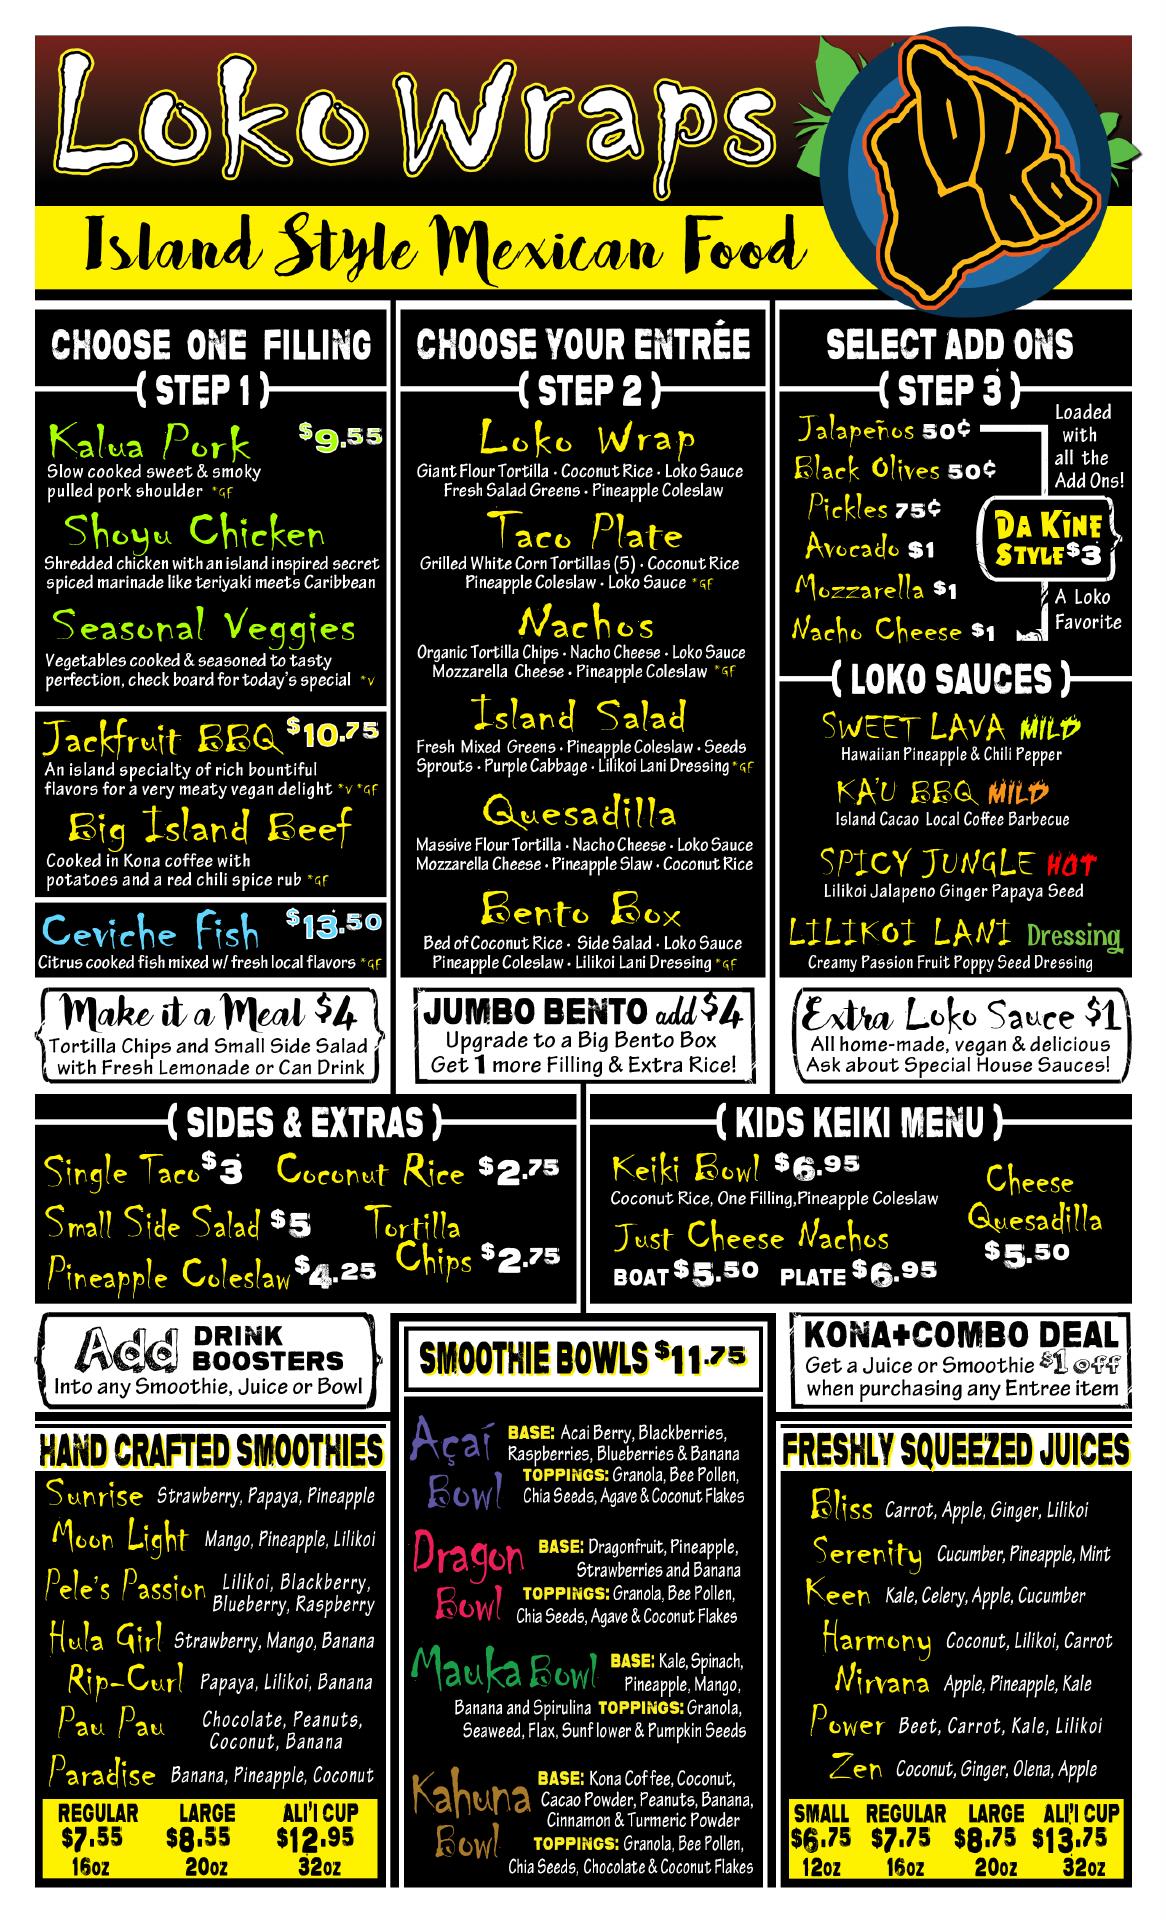 Loko Wraps
Loko
Island Style Mexican Food
CHOOSE ONE FILLING
( STEP 1 )
Kalua Pork $9.55
Slow cooked sweet & smoky
pulled pork shoulder *GF
Shoyu Chicken
Shredded chicken with an island inspired secret
spiced marinade like teriyaki meets Caribbean
Seasonal Veggies
Vegetables cooked & seasoned to tasty
perfection, check board for today's special *V
Jackfruit BBQ $10.75
An island specialty of rich bountiful
flavors for a very meaty vegan delight *V *GF
Big Island Beef
Cooked in Kona coffee with
potatoes and a red chili spice rub *GF
Ceviche Fish $13.50
Citrus cooked fish mixed w/ fresh local flavors *GF
Make it a Meal $4
Tortilla Chips and Small Side Salad
with Fresh Lemonade or Can Drink
CHOOSE YOUR ENTRÉE
( STEP 2 )
Loko Wrap
Giant Flour Tortilla • Coconut Rice • Loko Sauce
Fresh Salad Greens • Pineapple Coleslaw
Taco Plate
Grilled White Corn Tortillas (5) • Coconut Rice
Pineapple Coleslaw • Loko Sauce *GF
Nachos
Organic Tortilla Chips • Nacho Cheese • Loko Sauce
Mozzarella Cheese • Pineapple Coleslaw *GF
Island Salad
Fresh Mixed Greens • Pineapple Coleslaw • Seeds
Sprouts • Purple Cabbage • Lilikoi Lani Dressing *GF
Quesadilla
Massive Flour Tortilla • Nacho Cheese • Loko Sauce
Mozzarella Cheese • Pineapple Slaw • Coconut Rice
Bento Box
Bed of Coconut Rice • Side Salad • Loko Sauce
Pineapple Coleslaw • Lilikoi Lani Dressing *GF
JUMBO BENTO add $4
Upgrade to a Big Bento Box
Get 1 more Filling & Extra Rice!
SELECT ADD ONS
( STEP 3 )
Jalapeños 50¢
Black Olives 50¢
Pickles 75¢
Avocado $1
Mozzarella $1
Nacho Cheese $1
Loaded
with
all the
Add Ons!
DA KINE
STYLE $3
A Loko
Favorite
( LOKO SAUCES )
SWEET LAVA MILD
Hawaiian Pineapple & Chili Pepper
KA'U BBQ MILD
Island Cacao Local Coffee Barbecue
SPICY JUNGLE HOT
Lilikoi Jalapeno Ginger Papaya Seed
LILIKOI LANI Dressing
Creamy Passion Fruit Poppy Seed Dressing
Extra Loko Sauce $1
All home-made, vegan & delicious
Ask about Special House Sauces!
( SIDES & EXTRAS )
Single Taco $3 Coconut Rice $2.75
Small Side Salad $5 Tortilla
Pineapple Coleslaw $4.25 Chips $2.75
( KIDS KEIKI MENU )
Keiki Bowl $6.95
Coconut Rice, One Filling, Pineapple Coleslaw
Just Cheese Nachos
BOAT $5.50 PLATE $6.95
Cheese
Quesadilla
$5.50
Add DRINK
BOOSTERS
Into any Smoothie, Juice or Bowl
HAND CRAFTED SMOOTHIES
Sunrise Strawberry, Papaya, Pineapple
Moon Light Mango, Pineapple, Lilikoi
Pele's Passion Lilikoi, Blackberry,
Blueberry, Raspberry
Hula Girl Strawberry, Mango, Banana
Rip-Curl Papaya, Lilikoi, Banana
Pau Pau Chocolate, Peanuts,
Coconut, Banana
Paradise Banana, Pineapple, Coconut
REGULAR LARGE ALI'I CUP
$7.55 $8.55 $12.95
16oz 20oz 32oz
SMOOTHIE BOWLS $11.75
Açaí
Bowl
BASE: Acai Berry, Blackberries,
Raspberries, Blueberries & Banana
TOPPINGS: Granola, Bee Pollen,
Chia Seeds, Agave & Coconut Flakes
Dragon
Bowl
BASE: Dragonfruit, Pineapple,
Strawberries and Banana
TOPPINGS: Granola, Bee Pollen,
Chia Seeds, Agave & Coconut Flakes
Mauka Bowl BASE: Kale, Spinach,
Pineapple, Mango,
Banana and Spirulina TOPPINGS: Granola,
Seaweed, Flax, Sunflower & Pumpkin Seeds
Kahuna
Bowl
BASE: Kona Coffee, Coconut,
Cacao Powder, Peanuts, Banana,
Cinnamon & Turmeric Powder
TOPPINGS: Granola, Bee Pollen,
Chia Seeds, Chocolate & Coconut Flakes
KONA+COMBO DEAL
Get a Juice or Smoothie $1 off
when purchasing any Entree item
FRESHLY SQUEEZED JUICES
Bliss Carrot, Apple, Ginger, Lilikoi
Serenity Cucumber, Pineapple, Mint
Keen Kale, Celery, Apple, Cucumber
Harmony Coconut, Lilikoi, Carrot
Nirvana Apple, Pineapple, Kale
Power Beet, Carrot, Kale, Lilikoi
Zen Coconut, Ginger, Olena, Apple
SMALL REGULAR LARGE ALI'I CUP
$6.75 $7.75 $8.75 $13.75
12oz 16oz 20oz 32oz